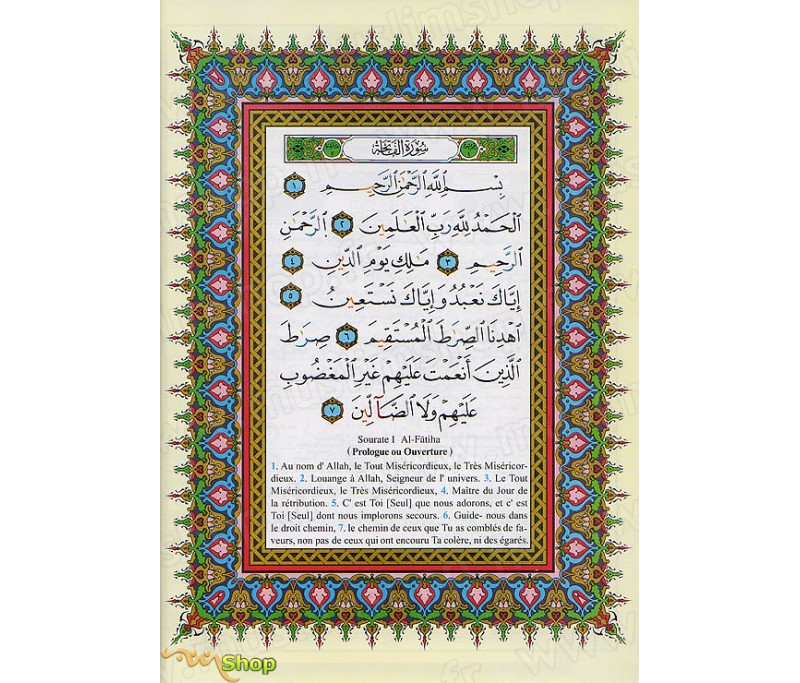 سُورَةُ الْفَاتِحَةِ
بِسْمِ ٱللَّهِ ٱلرَّحْمَٰنِ ٱلرَّحِيمِ ١
ٱلْحَمْدُ لِلَّهِ رَبِّ ٱلْعَٰلَمِينَ ٢ ٱلرَّحْمَٰنِ
ٱلرَّحِيمِ ٣ مَٰلِكِ يَوْمِ ٱلدِّينِ ٤
إِيَّاكَ نَعْبُدُ وَإِيَّاكَ نَسْتَعِينُ ٥
ٱهْدِنَا ٱلصِّرَٰطَ ٱلْمُسْتَقِيمَ ٦ صِرَٰطَ
ٱلَّذِينَ أَنْعَمْتَ عَلَيْهِمْ غَيْرِ ٱلْمَغْضُوبِ
عَلَيْهِمْ وَلَا ٱلضَّآلِّينَ ٧
Sourate 1 Al-Fātiha
( Prologue ou Ouverture )
1. Au nom d' Allah, le Tout Miséricordieux, le Très Miséricor-
dieux. 2. Louange à Allah, Seigneur de l' univers. 3. Le Tout
Miséricordieux, le Très Miséricordieux, 4. Maître du Jour de
la rétribution. 5. C' est Toi [Seul] que nous adorons, et c' est
Toi [Seul] dont nous implorons secours. 6. Guide- nous dans
le droit chemin, 7. le chemin de ceux que Tu as comblés de fa-
veurs, non pas de ceux qui ont encouru Ta colère, ni des égarés.
Shop